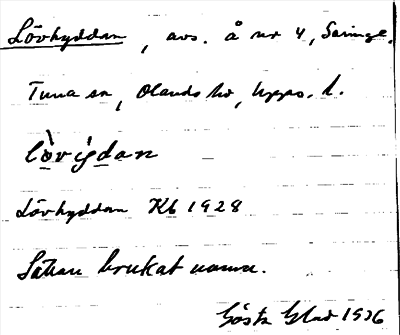 Lövhyddan, avs. å nr 4, Saringe.
Tuna sn, Olands hd, Upps. l.
lòviẏdan
Lövhyddan Kb 1928
Sällan brukat namn.
Gösta Blad 1936